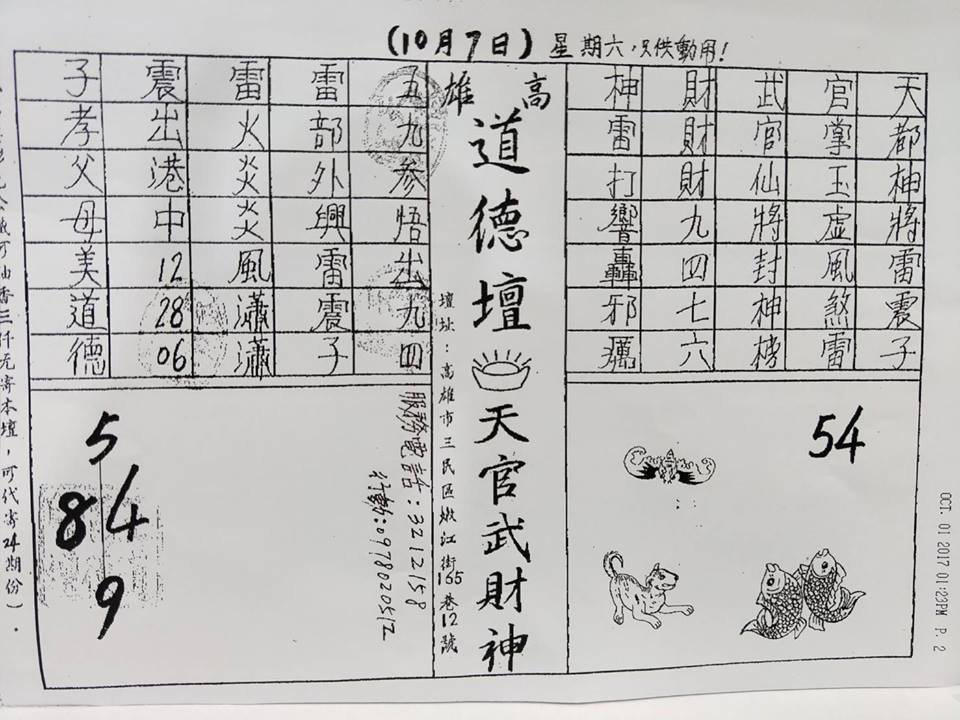 (10月7日)星期六,只供動用!
天都神將雷震子
官掌玉虛風煞雷
武官仙將封神榜
財財財九四七六
神雷打響轟邪癘
54
高雄
道德壇
天官武財神
壇址:高雄市三民區嫩江街165巷12號
五九參悟出九四
雷部外興雷震子
雷火炎炎風瀟瀟
震出港中12 28 06
子孝父母美道德
服務電話:3212158
行動:0978020512
5
8 4
9
油香三仟元寄本壇,可代寄24期份).
OCT. 01 2017 01:23PM P. 2